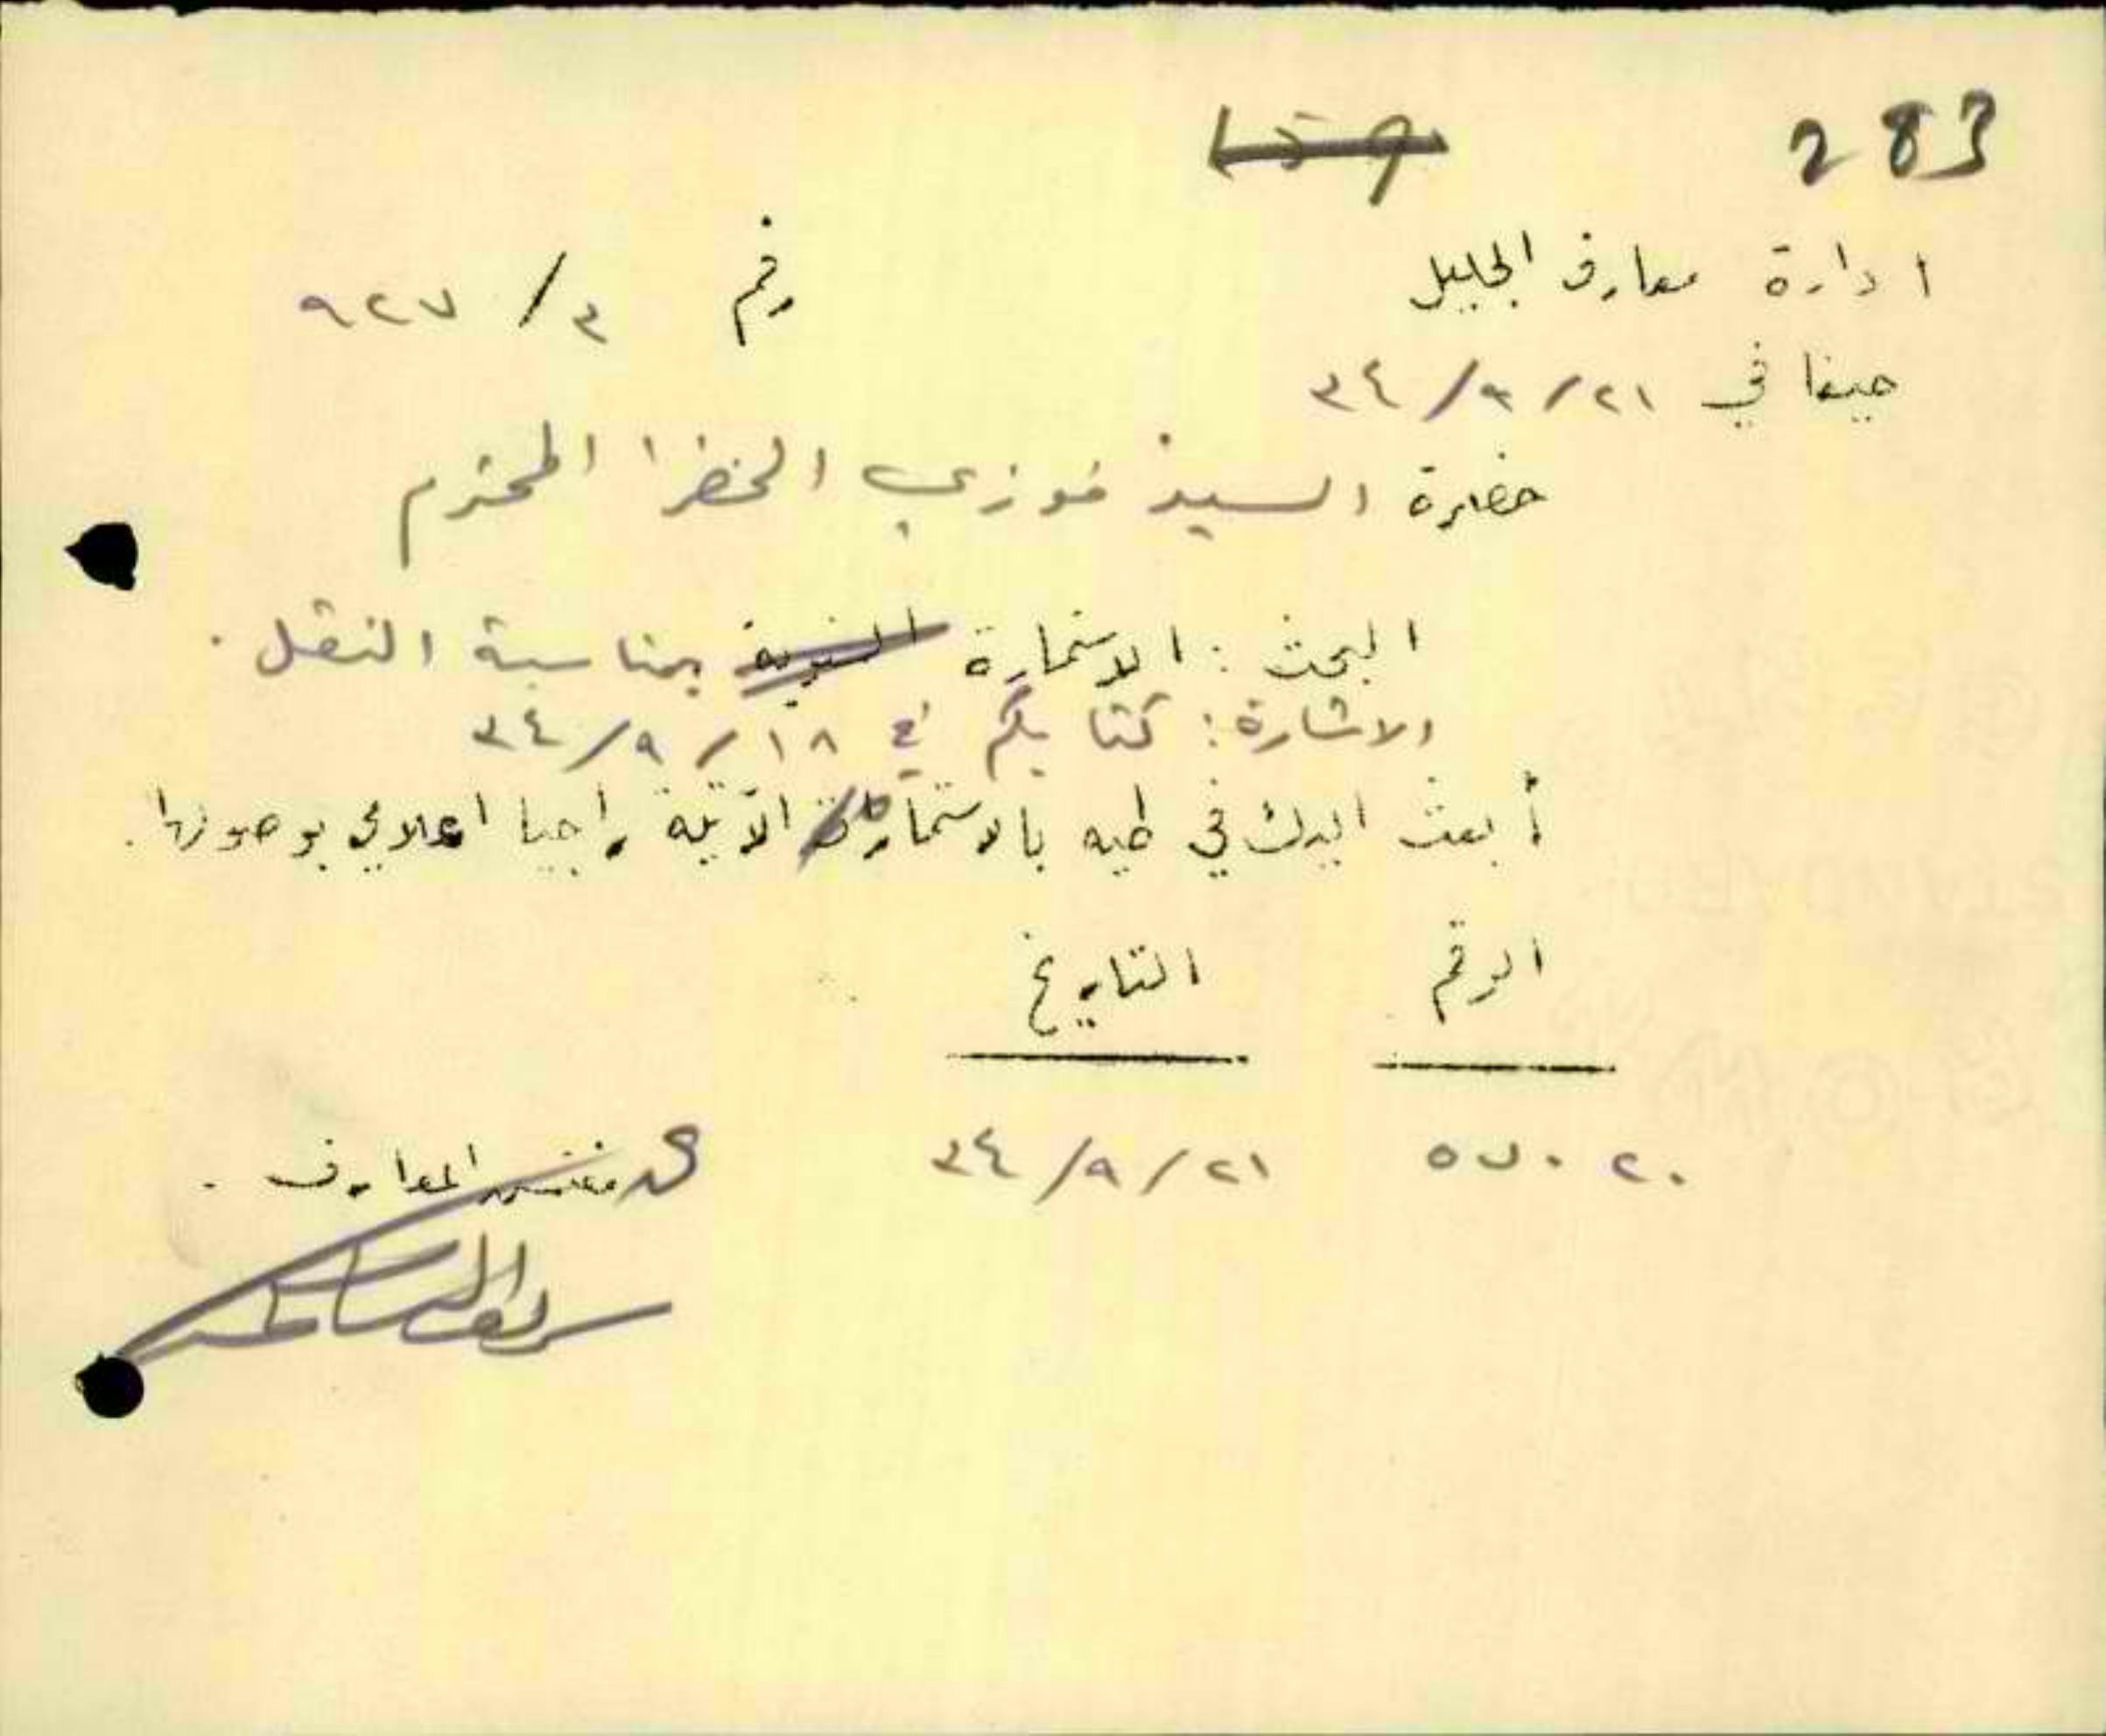 283
ادارة معارف الجليل
رقم ٣/ ٩٢٧
حيفا في ٢١/ ٩/ ٣٤
حضرة السيد فوزي الخضرا المحترم
البحث : الاستمارة السنوية بمناسبة النقل .
الاشارة : كتابكم في ١٨/ ٩/ ٣٤
أبعث اليك في طيه بالاستمارة الآتية راجيا اعلامي بوصولها .
الرقم التاريخ
٥٧٠٢٠ ٢١/ ٩/ ٣٤
مفتش المعارف .